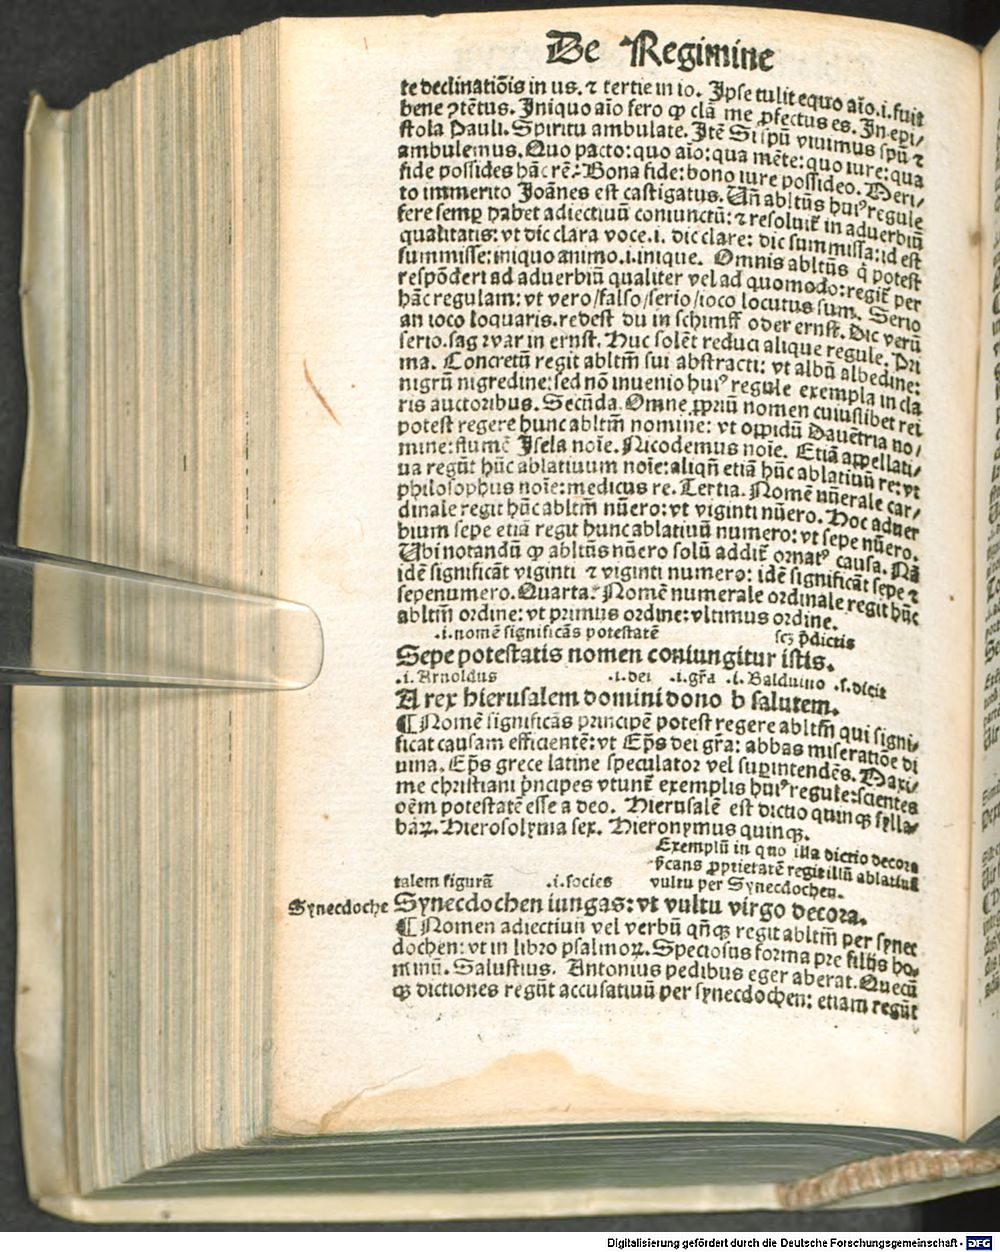 De Regimine
te declinatiõis in us. ⁊ tertie in io. Ipse tulit equo aĩo .i. fuit
bene ꝯtẽtus. Iniquo aĩo fero ꝙ clã me ꝓfectus es. In epi/
stola Pauli. Spiritu ambulate. Itẽ Si spũ viuimus spũ ⁊
ambulemus. Quo pacto: quo aĩo: qua mẽte: quo iure: qua
fide possides hãc rẽ: Bona fide: bono iure possideo. Meri/
to immerito Joãnes est castigatus. Uñ abltũs huiꝰ regule
fere semꝑ habet adiectiuũ coniunctũ: ⁊ resoluit̃ in aduerbiũ
qualitatis: vt dic clara voce .i. dic clare: dic summissa: id est
summisse: iniquo animo .i. inique. Omnis abltũs q̇ potest
respõderi ad aduerbiũ qualiter vel ad quomodo: regit̃ per
hãc regulam: vt vero/falso/serio/ioco locutus sum. Serio
an ioco loquaris. redest du in schimff oder ernst. Dic verũ
serio. sag war in ernst. Huc solẽt reduci alique regule. Pri
ma. Concretũ regit abltm̃ sui abstracti: vt albũ albedine:
nigrũ nigredine: sed nõ inuenio huiꝰ regule exempla in cla
ris auctoribus. Secũda. Omne ꝓpriũ nomen cuiuslibet rei
potest regere hunc abltm̃ nomine: vt oppidũ Dauẽtria no/
mine: flumẽ Isela noĩe. Nicodemus noĩe. Etiã appellati/
ua regũt hũc ablatiuum noĩe: aliqñ etiã hũc ablatiuũ re: vt
philosophus noĩe: medicus re. Tertia. Nomẽ nũerale car/
dinale regit hũc abltm̃ nũero: vt viginti nũero. Hoc aduer
bium sepe etiã regit hunc ablatiuũ numero: vt sepe nũero.
Ubi notandũ ꝙ abltũs nũero solũ addit̃ ornatꝰ causa. Nã
idẽ significãt viginti ⁊ viginti numero: idẽ significãt sepe ⁊
sepenumero. Quarta. Nomẽ numerale ordinale regit hũc
abltm̃ ordine: vt primus ordine: vltimus ordine.
.i. nomẽ significãs potestatẽ scꝫ p̃dictis
Sepe potestatis nomen coniungitur istis.
.i. Arnoldus .i. dei .i. gr̃a .i. Balduino .s. dicit
A rex hierusalem domini dono b salutem.
¶ Nomẽ significãs principẽ potest regere abltm̃ qui signi/
ficat causam efficientẽ: vt Ep̃s dei gr̃a: abbas miseratiõe di
uina. Ep̃s grece latine speculator vel suꝑintendẽs. Maxi/
me christiani p̃ncipes vtunt̃ exemplis huiꝰ regule: scientes
oẽm potestatẽ esse a deo. Hierusalẽ est dictio quinqꝫ sylla/
baꝝ. Hierosolyma sex. Hieronymus quinqꝫ.
Exemplũ in quo illa dictio decora
ꝓprietatẽ regit illũ ablatiuũ
talem figurã .i. socies vultu per Synecdochen.
Synecdoche Synecdochen iungas: vt vultu virgo decora.
¶ Nomen adiectiuũ vel verbũ qñqꝫ regit abltm̃ per synec
dochen: vt in libro psalmoꝝ. Speciosus forma pre filiis ho/
minũ. Salustius. Antonius pedibus eger aberat. Quecũ
qꝫ dictiones regũt accusatiuũ per synecdochen: etiam regũt
Digitalisierung gefördert durch die Deutsche Forschungsgemeinschaft - DFG